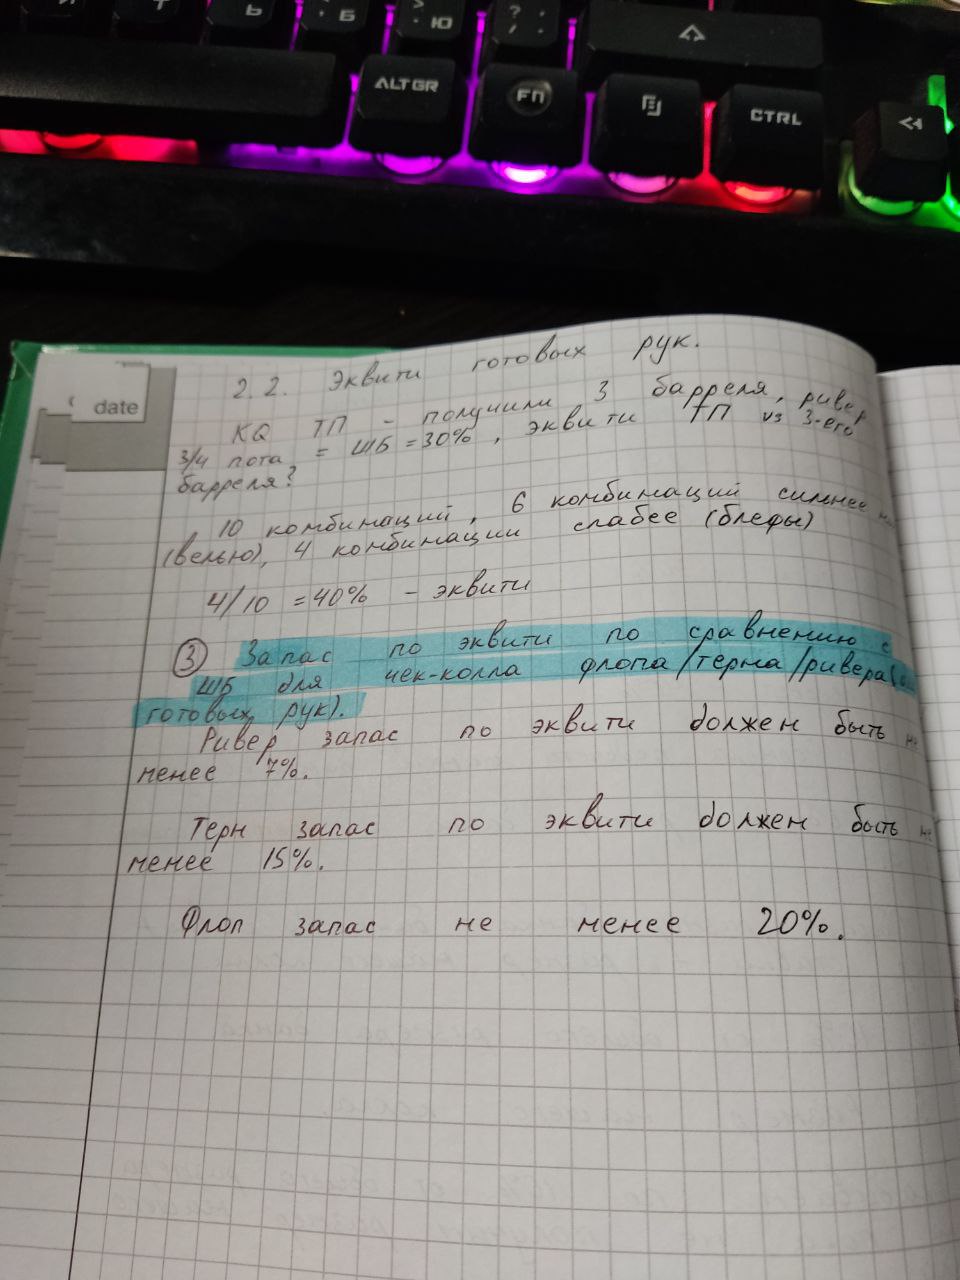 Ь
Б
Ю
?
ALTGR
FN
CTRL
date
2.2. Эквити готовых рук.
KQ ТП - получили 3 барреля, ривер
3/4 пота = ШБ = 30%, эквити ТП vs 3-его
барреля?
10 комбинаций, 6 комбинаций сильнее
(велью), 4 комбинации слабее (блефы)
4/10 = 40% - эквити
3 Запас по эквити по сравнению с
ШБ для чек-колла флопа/терна/ривера(
готовых рук).
Ривер запас по эквити должен быть не
менее 7%.
Терн запас по эквити должен быть не
менее 15%.
Флоп запас не менее 20%.